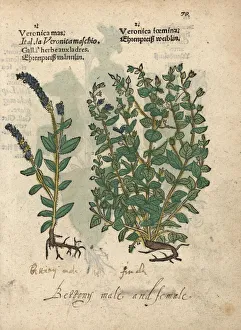 79.
1.
Veronica mas.
Ital. la Veronica maschio.
Gall. l'herbe aux ladres.
Ehrenpreiß männlin.
2.
Veronica fœmina.
Ehrenpreiß weiblin.
Bettony male female
Bettony male and female